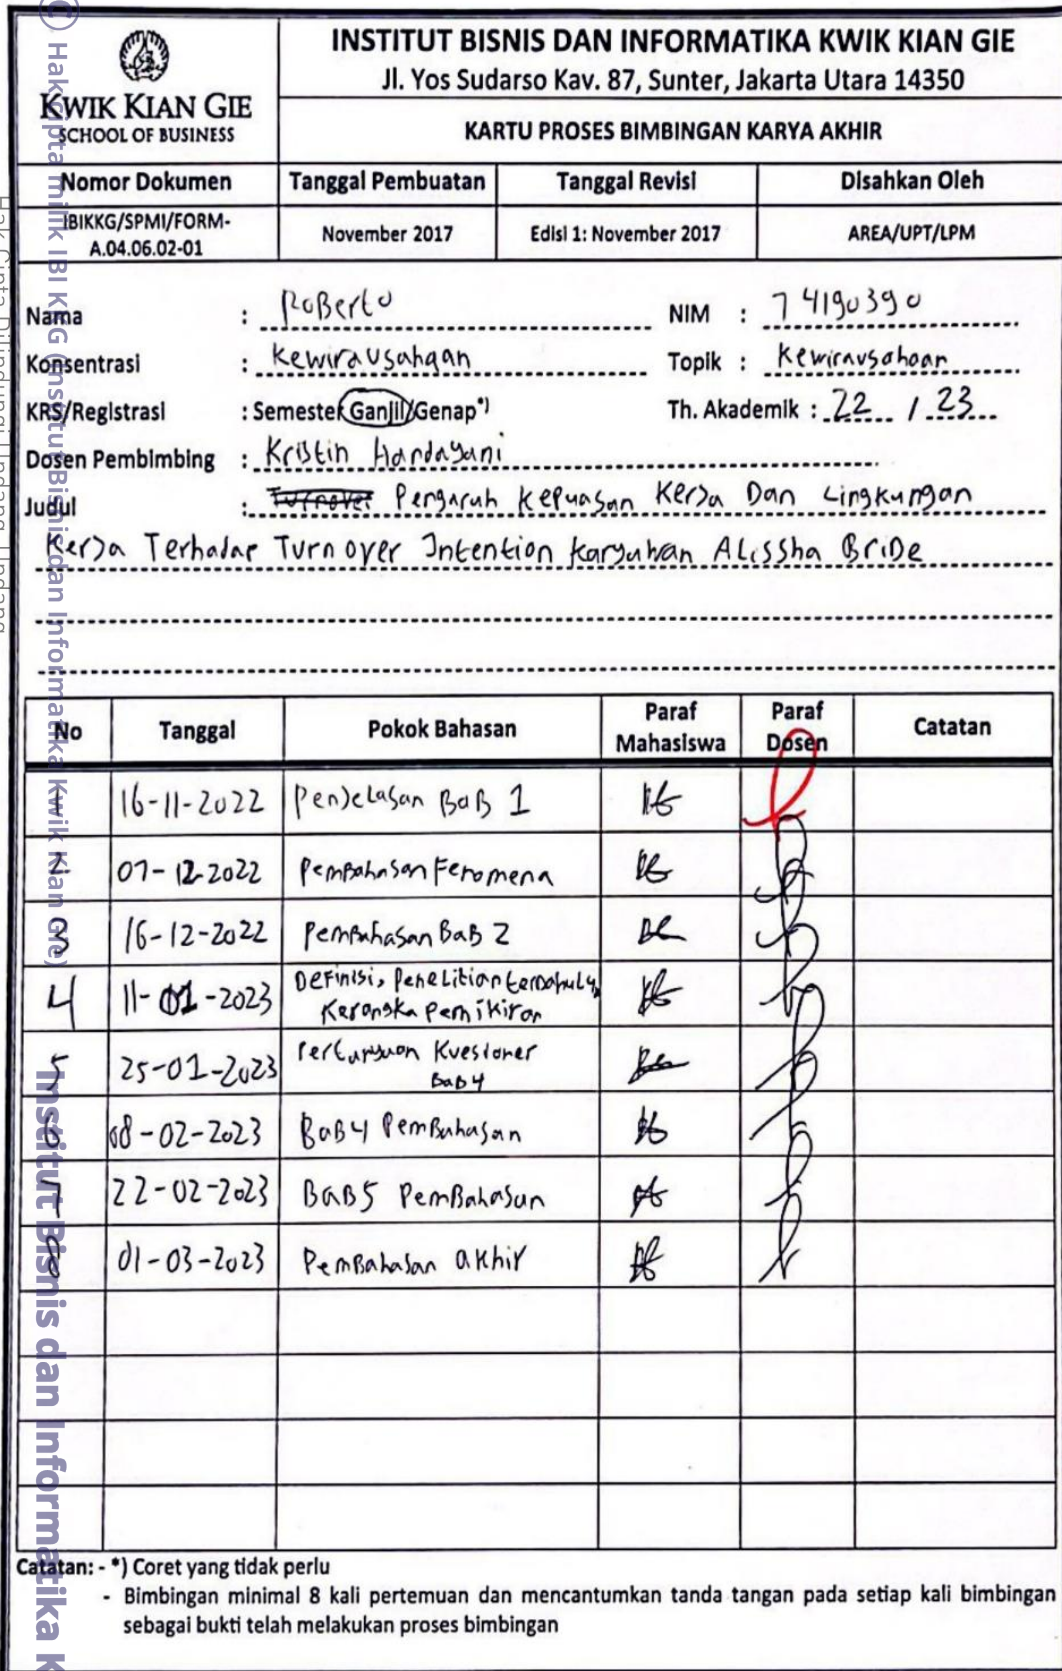 INSTITUT BISNIS DAN INFORMATIKA KWIK KIAN GIE
Jl. Yos Sudarso Kav. 87, Sunter, Jakarta Utara 14350
KWIK KIAN GIE
SCHOOL OF BUSINESS
KARTU PROSES BIMBINGAN KARYA AKHIR
Nomor Dokumen Tanggal Pembuatan Tanggal Revisi Disahkan Oleh
IBIKKG/SPMI/FORM-
A.04.06.02-01 November 2017 Edisi 1: November 2017 AREA/UPT/LPM
Nama : Roberto NIM : 74190390
Konsentrasi : Kewirausahaan Topik : Kewirausahaan
KRS/Registrasi : Semester Ganjil/Genap*) Th. Akademik : 22 / 23
Dosen Pembimbing : Kristin Handayani
Judul : Turnover Pengaruh Kepuasan Kerja Dan Lingkungan
Kerja Terhadap Turnover Intention Karyawan Alissha Bride
No Tanggal Pokok Bahasan Paraf Mahasiswa Paraf Dosen Catatan
1 16-11-2022 Penjelasan BaB 1
2 07-12-2022 Pembahasan Fenomena
3 16-12-2022 Pembahasan BaB 2
4 11-01-2023 Definisi, Penelitian terdahulu,
Kerangka Pemikiran
5 25-01-2023 Pertanyaan Kuesioner
BaB 4
6 08-02-2023 BaB 4 Pembahasan
7 22-02-2023 BAB 5 Pembahasan
8 01-03-2023 Pembahasan akhir
Catatan: - *) Coret yang tidak perlu
- Bimbingan minimal 8 kali pertemuan dan mencantumkan tanda tangan pada setiap kali bimbingan
sebagai bukti telah melakukan proses bimbingan
© Hak cipta milik IBI KKG (Institut Bisnis dan Informatika Kwik Kian Gie)
Institut Bisnis dan Informatika K
Hak Cipta Dilindungi Undang-Undang